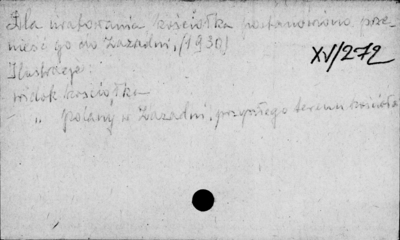 Dla uratowania kościółka postanowiono prze-
nieść go do Zazadni, (1930)
XV/272
Ilustracje:
widok kościółka
" polany w Zazadni, przyszłego terenu kościoła